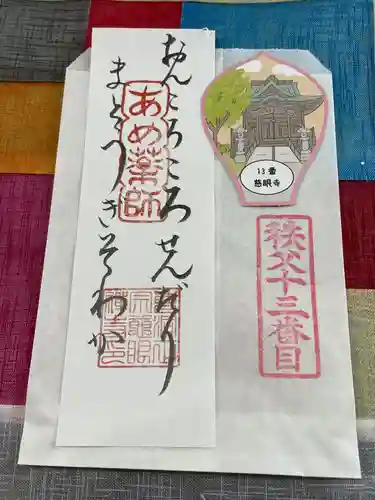 おんころころせんだり
まとうぎそわか
あめ薬師
13番
慈眼寺
秩父十三番目